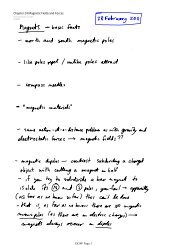 Chapter 24 Magnetic Fields and Forces
28 February 2011
Magnets - basic facts
- north and south magnetic poles
- like poles repel / unlike poles attract
- compass needles
- "magnetic materials"
- same action-at-a-distance problem as with gravity and
electrostatic forces → magnetic fields??
- magnetic dipoles - contrast subdividing a charged
object with cutting a magnet in half
- if you try to subdivide a bar magnet to
isolate its N and S poles, you find - apparently
(as far as we know so far) this can't be done
- that is, as far as we know there are no magnetic
monopoles (as there are in electric charges) →
magnets always occur as dipoles